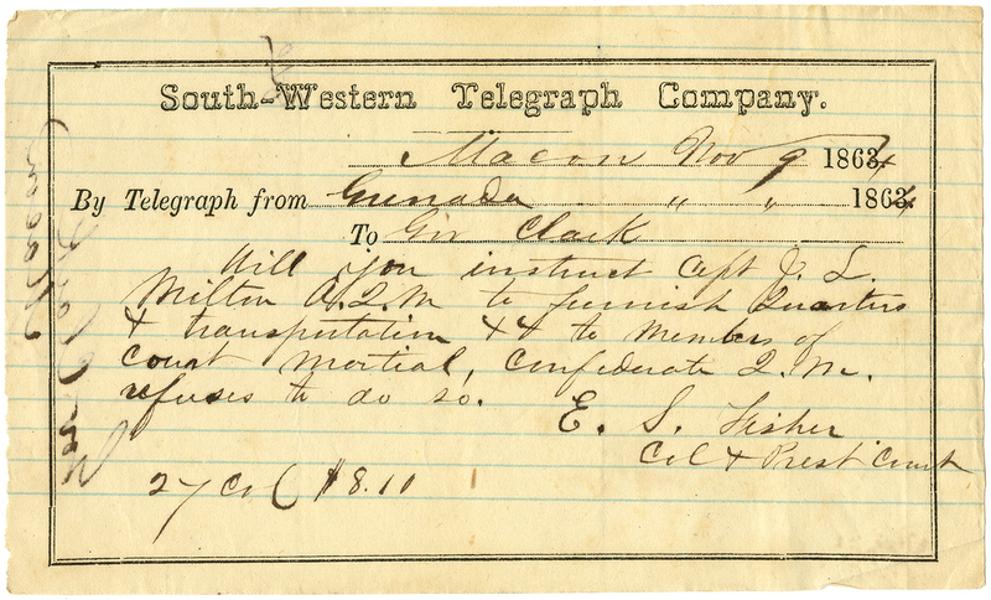 South-Western Telegraph Company.
Macon Nov 9 1864
By Telegraph from Grenada " " 1864
To Gov Clark
Will you instruct Capt J. L.
Milton A.Q.M to furnish Quarters
& transportation && to members of
court martial, Confederate Q.M.
refuses to do so.
E. S. Fisher
Col & Prest Court
27 Col $8.10